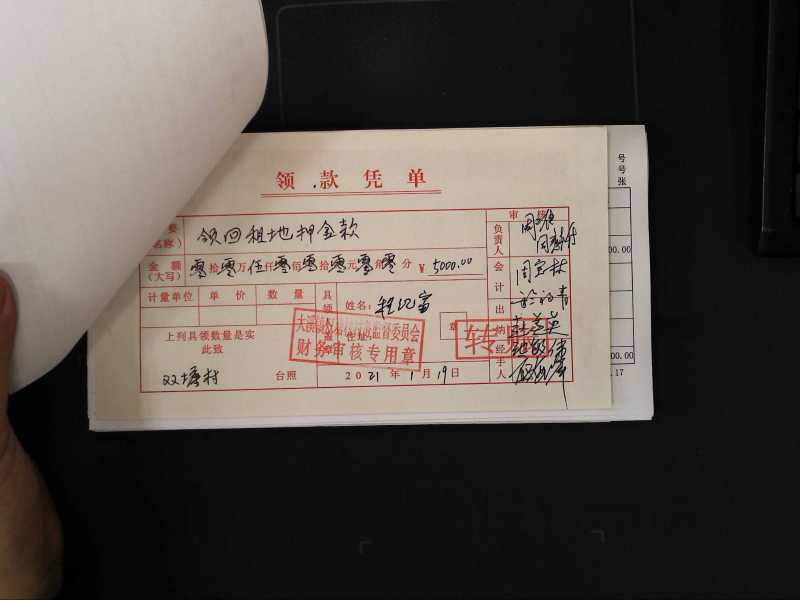 领款凭单
要
名称）
领回租地押金款
审核
负责人
金额
（大写）
零拾零万伍仟零佰零拾零元零角零分 ¥ 5000.00
会计
周宝林
计量单位 单价 数量
具领
姓名：程
出纳
上列具领数量是实
此致
监督委员会
财务审核专用章
章
转
经手人
双塘村 台照 2021年1月19日
号
号
张
00.00
00.00
.17